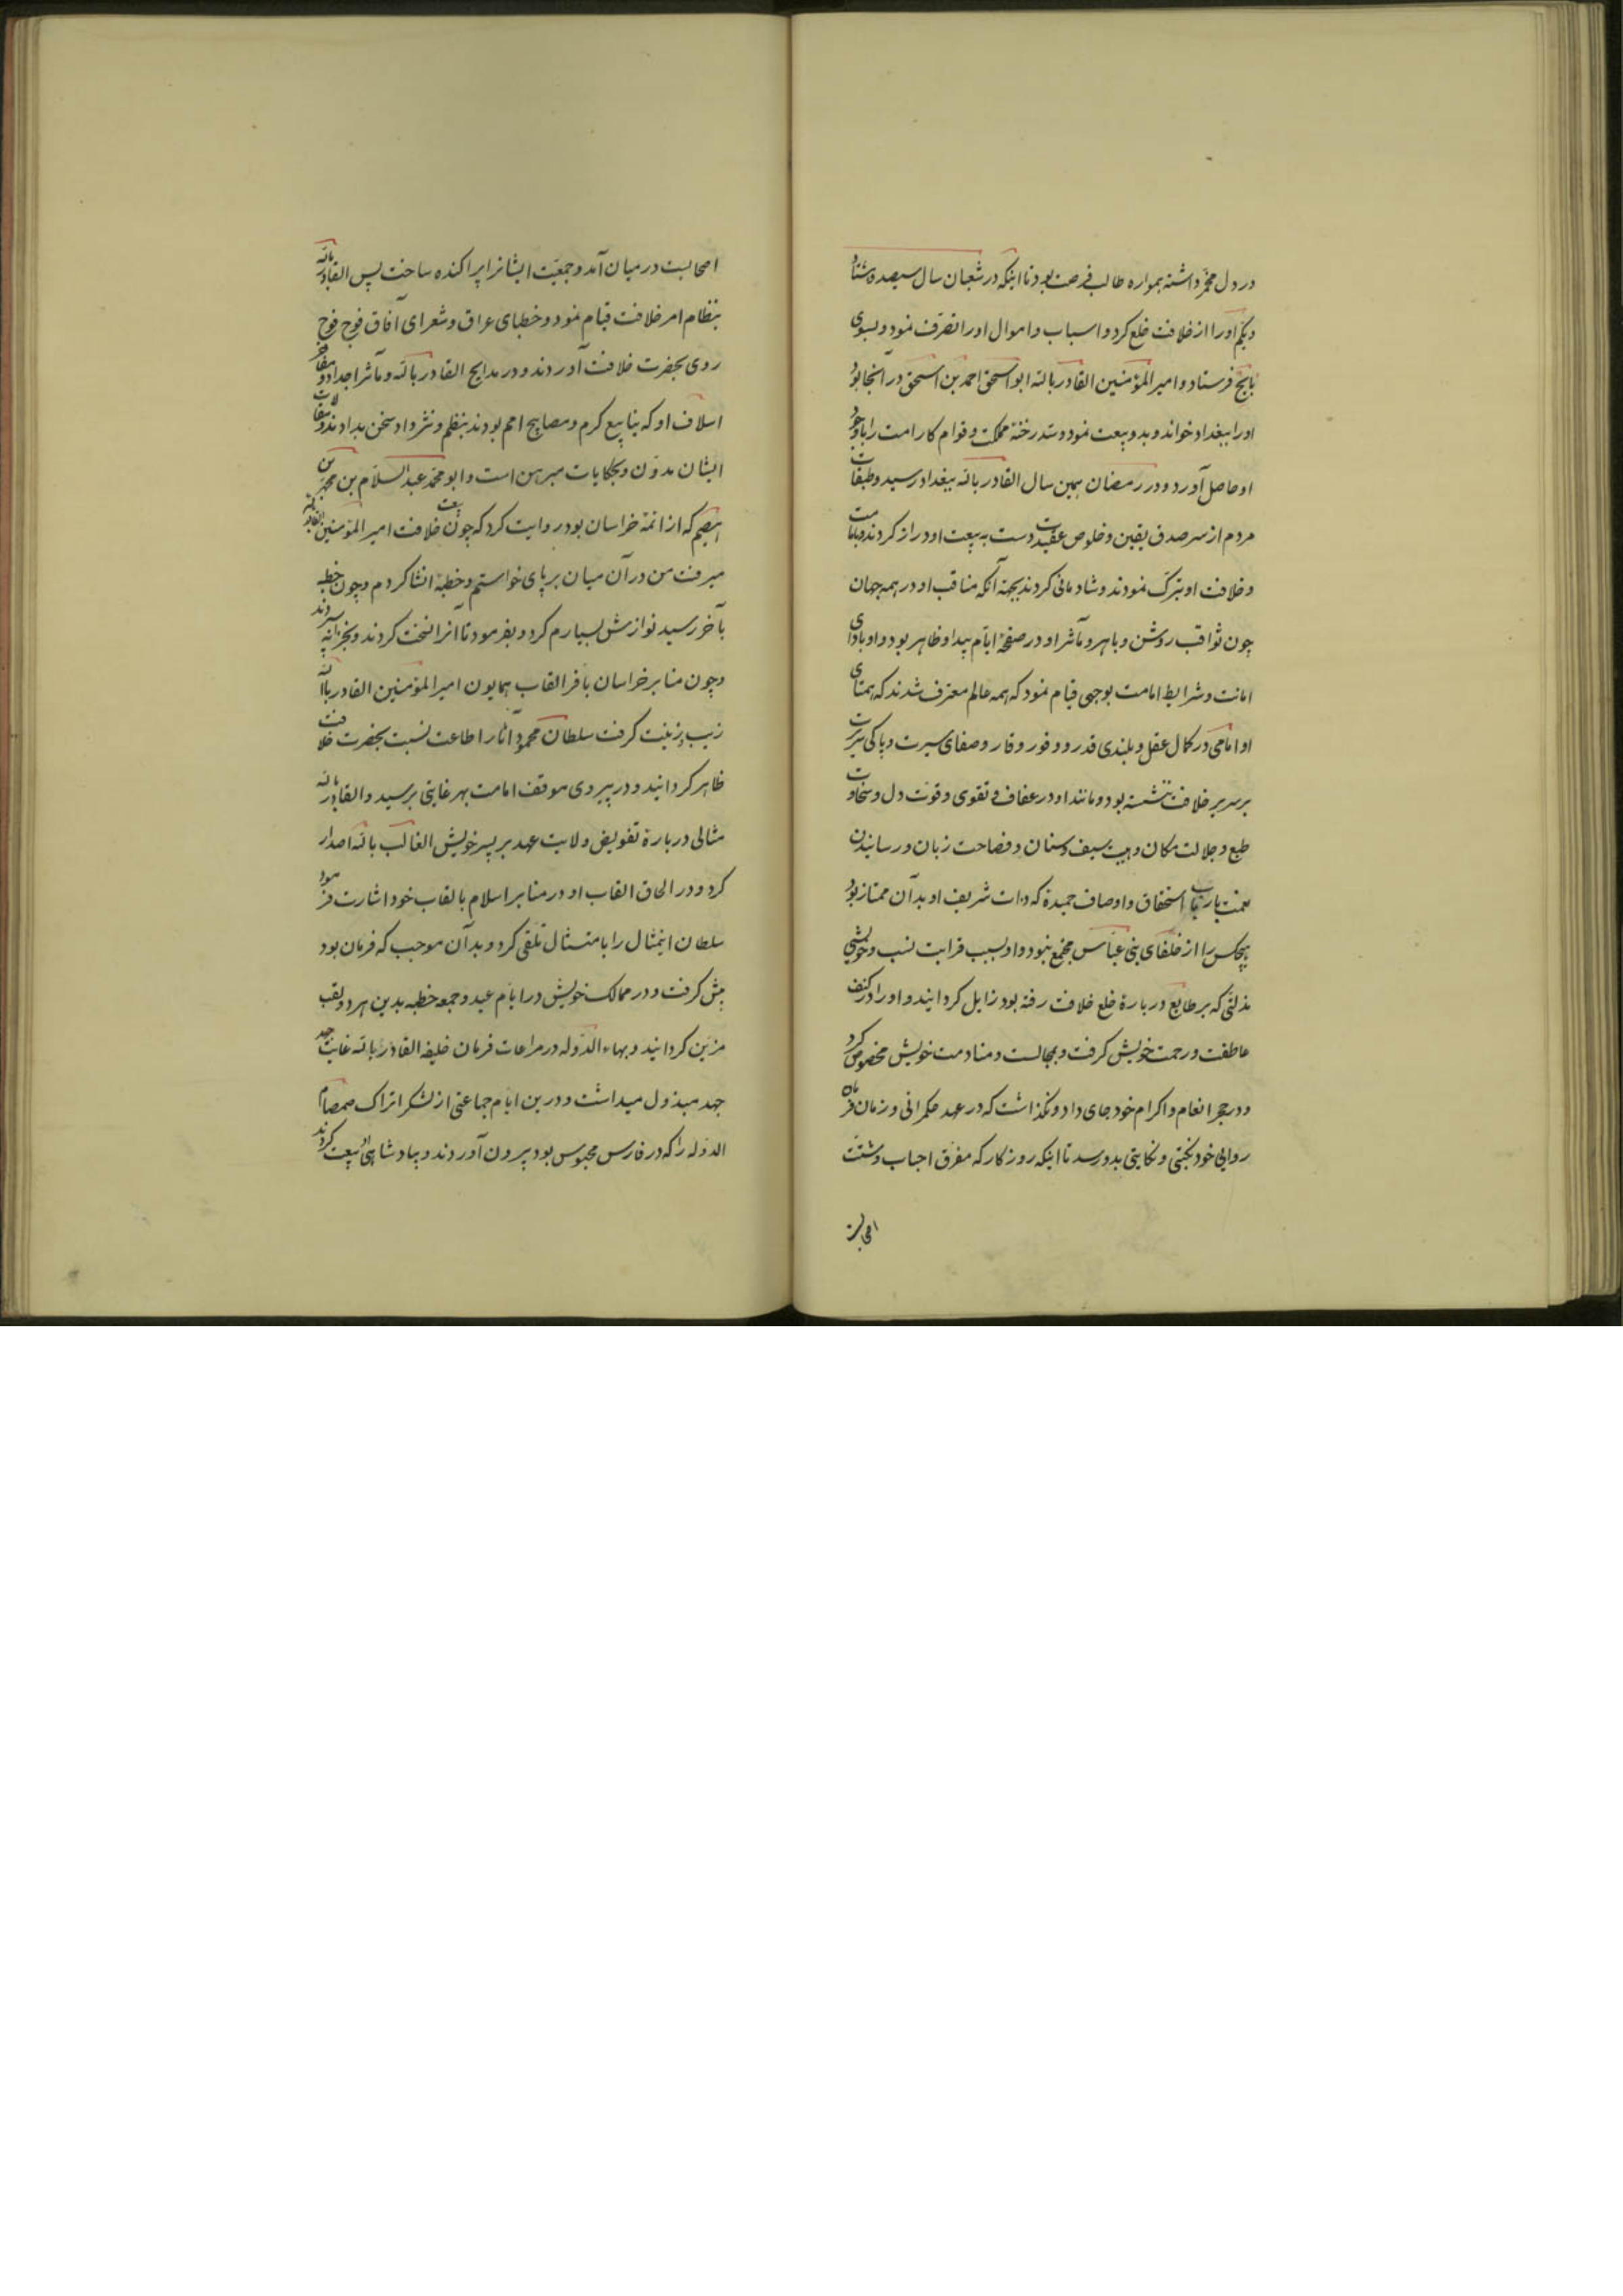 در دل مخمر داشته همواره طالب فرصت بود تا اینکه در شعبان سال سیصد و هشتاد
ویکم او را از خلافت خلع کرد و اسباب و اموال او را تصرف نمود و بسوی
فرستاد و امیر المؤمنین القادر بالله ابو اسحق احمد بن اسحق در آنجا بود
او را ببغداد خواند و بدو بیعت نمود و سد رخنه مملکت و قوام کار امت را با وجود
او حاصل آورد و در رمضان همین سال القادر بالله ببغداد رسید و طبقات
مردم از سر صدق یقین و خلوص عقیدت دست به بیعت او دراز کردند و بامامت
و خلافت او تبرک نمودند و شادمانی کردند بجهة آنکه مناقب او در همه جهان
چون ثواقب روشن و باهر و مآثر او در صفحۀ ایام پیدا و ظاهر بود و او بادای
امانت و شرایط امامت بوجهی قیام نمود که همه عالم معترف شدند که همتای
او امامی در کمال عقل و بلندی قدر و وفور وقار و صفای سیرت و پاکی سریرت
بر سریر خلافت ننشسته بود و مانند او در عفاف و تقوی و قوت دل و سخاوت
طبع و جلالت مکان و هیبت سیف و سنان و فصاحت زبان و رسانیدن
نعمت بارباب استحقاق و اوصاف حمیدة که ذات شریف او بدان ممتاز بود
هیچکس را از خلفای بنی عباس مجتمع نبود و او بسبب قرابت نسب و خویشی
مذلتی که بر طایع در بارۀ خلع خلافت رفته بود زایل گردانید و او را در کنف
عاطفت و رحمت خویش گرفت و بمجالست و منادمت خویش مخصوص کرد
و در حجر انعام و اکرام خود جای داد و نگذاشت که در عهد حکمرانی و زمان فرمان
روایی خود نکبتی و نکایتی بدو رسد تا اینکه روزگار که مفرق احباب و مشتت
اصحابست
اصحابست در میان آمد و جمعیت ایشانرا پراکنده ساخت پس القادر بالله
بنظام امر خلافت قیام نمود و خطبای عراق و شعرای آفاق فوج فوج
روی بحضرت خلافت آوردند و در مدایح القادر بالله و مآثر اجداد و مفاخر
اسلاف او که ینابیع کرم و مصابیح امم بودند بنظم و نثر داد سخن بدادند و مقالات
ایشان مدون و بحکایات مبرهن است و ابو محمد عبد السلام بن محمد بن
هیصم که از ائمۀ خراسان بود روایت کرد که چون بیعت خلافت امیر المؤمنین القادر بالله
میرفت من در آن میان بر پای خواستم و خطبۀ انشا کردم و چون خطبه
بآخر رسید نوازش بسیارم کرد و بفرمود تا آنرا نسخت کردند و بخزانه سپردند
و چون منابر خراسان بافر القاب همایون امیر المؤمنین القادر بالله
زیب و زینت گرفت سلطان محمود آثار اطاعت نسبت بحضرت خلافت
ظاهر گردانید و در پیروی موقف امامت بهر غایتی برسید و القادر بالله
مثالی در بارۀ تفویض ولایت عهد بر پسر خویش الغالب بالله اصدار
کرد و در الحاق القاب او در منابر اسلام بالقاب خود اشارت فرمود
سلطان اینمثال را بامتثال تلقی کرد و بدان موجب که فرمان بود
پیش گرفت و در ممالک خویش در ایام عید و جمعه خطبه بدین هر دو لقب
مزین گردانید و بهاء الدوله در مراعات فرمان خلیفه القادر بالله غایت جد
جهد مبذول میداشت و درین ایام جماعتی از لشکر اتراک صمصام
الدوله را که در فارس محبوس بود بیرون آوردند و بپادشاهی او بیعت کردند